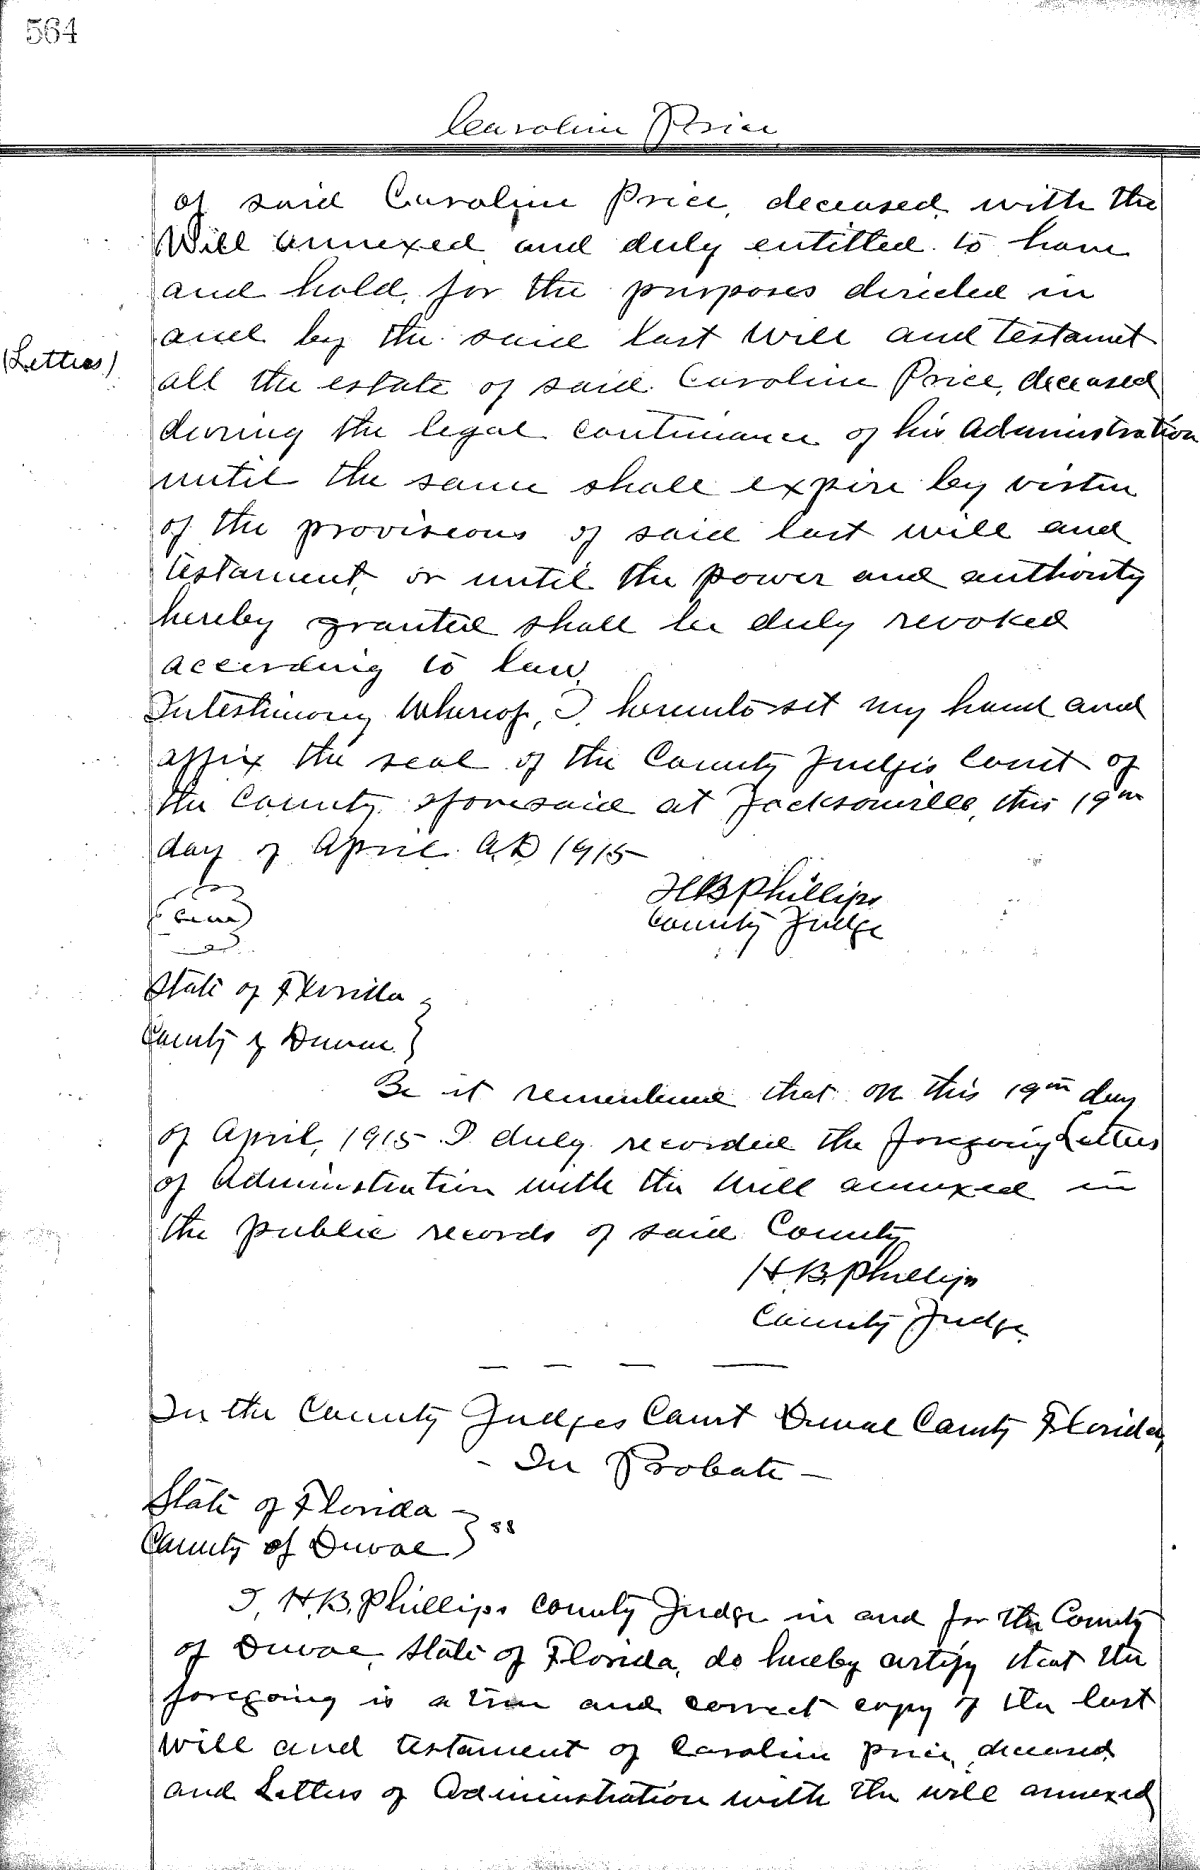 564
Caroline Price
of said Caroline Price, deceased, with the
Will annexed and duly entitled to have
and hold, for the purposes directed in
and by the said last will and testament
(Letters)
all the estate of said Caroline Price, deceased
during the legal continuance of his Administration
until the same shall expire by virtue
of the provisions of said last will and
testament, or until the power and authority
hereby granted shall be duly revoked
according to law.
In testimony Whereof, I, hereunto set my hand and
affix the seal of the County Judge's Court of
the County aforesaid at Jacksonville, this 19th
day of April A.D 1915
H B Phillips
(Seal)
County Judge
State of Florida
County of Duval }
Be it remembered that on this 19th day
of April, 1915 I duly recorded the foregoing Letters
of Administration with the Will annexed in
the public records of said County
H. B. Phillips
County Judge.
In the County Judges Court Duval County Florida,
- In Probate -
State of Florida
County of Duval } ss
I, H.B. Phillips County Judge in and for the County
of Duval, State of Florida, do hereby certify that the
foregoing is a true and correct copy of the last
will and testament of Caroline Price, deceased
and Letters of Administration with the will annexed